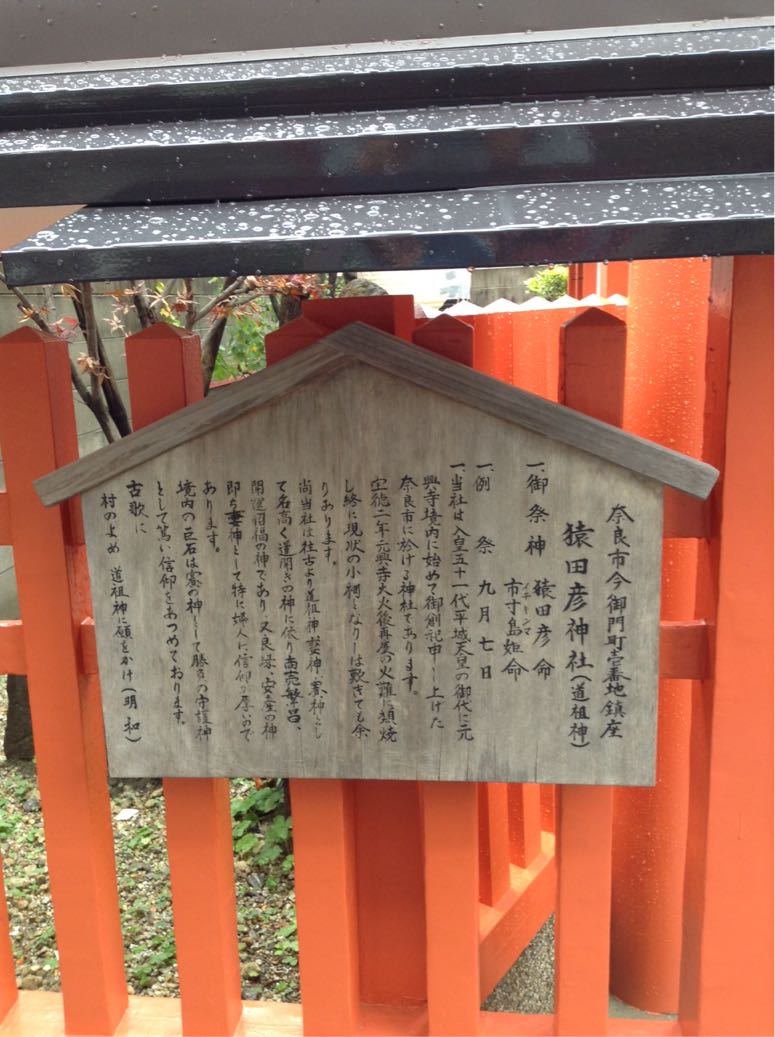 奈良市今御門町壱番地鎮座
猿田彦神社(道祖神)
一、御祭神 猿田彦命
市寸島姫命
イチキシマ
一、例祭 九月七日
一、当社は人皇五十一代平城天皇の御代に元
興寺境内に始めて御創祀申し上げた
奈良市に於ける神社であります。
宝徳二年元興寺大火後再度の火難に類焼
し終に現状の小祠となりしは歎きても余
りあります。
尚当社は往古より道祖神 神、賽神とし
て名高く道開きの神に依り商売繁昌、
開運招福の神であり又良縁、安産の神
即ち妻神として特に婦人に信仰が厚いので
あります。
境内の巨石は賽の神として勝負の守護神
として篤い信仰をあつめております。
古歌に
村のよめ 道祖神に願をかけ(明和)